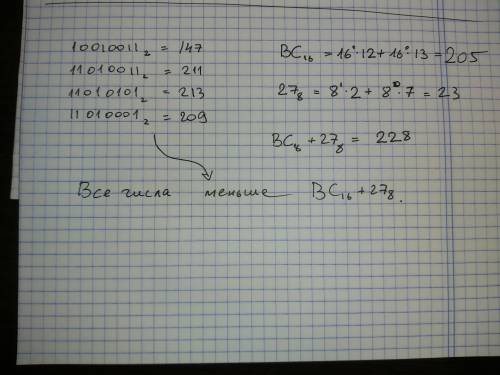 10010011₂ = 147
11010011₂ = 211
11010101₂ = 213
11010001₂ = 209
BC₁₆ = 16¹·12+16⁰·13=205
27₈ = 8¹·2+8⁰·7 = 23
BC₁₆+27₈ = 228
Все числа меньше BC₁₆+27₈.